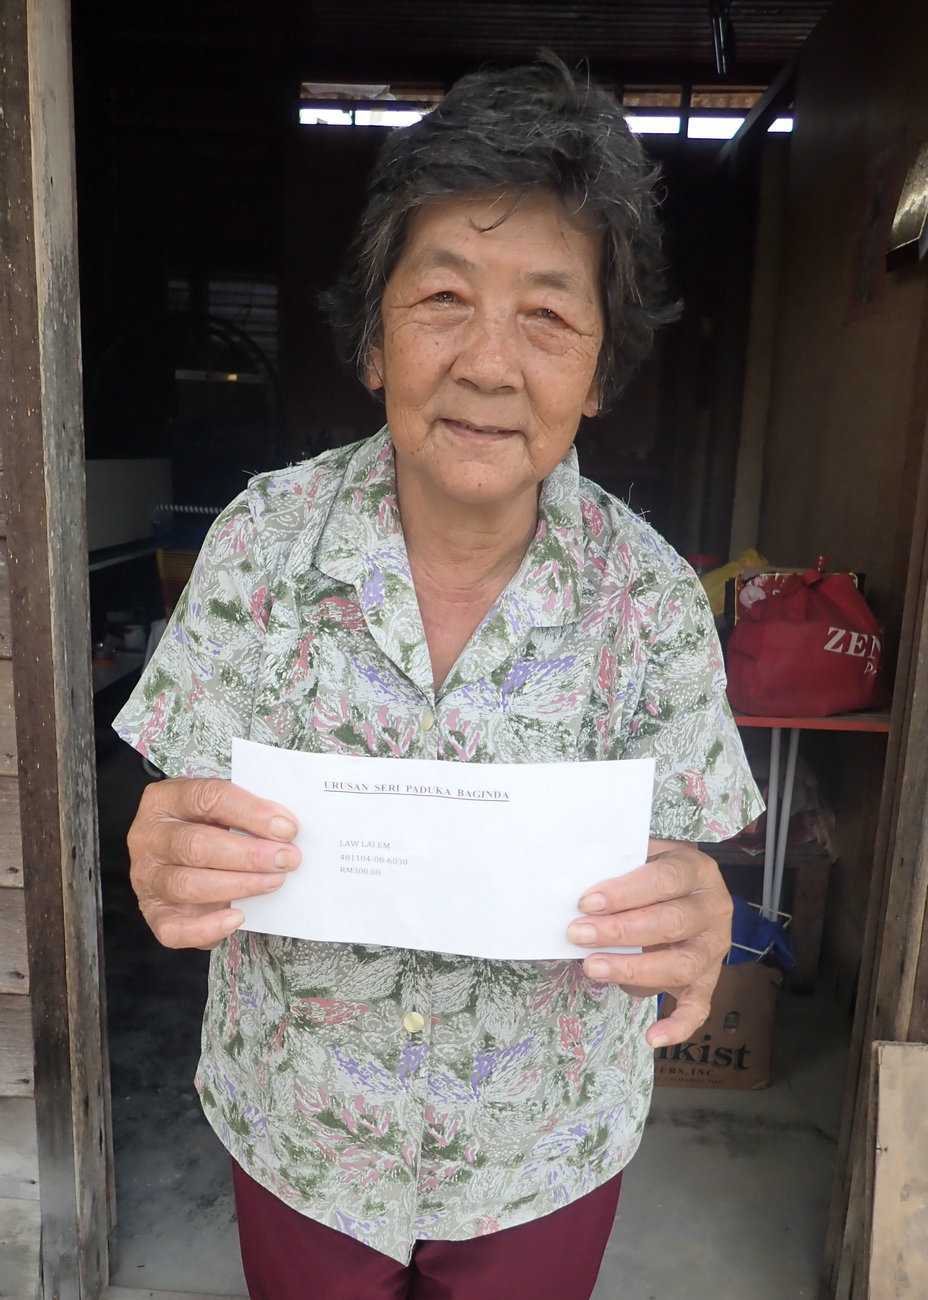 URUSAN SERI PADUKA BAGINDA
LAW LAI EM
481104-08-6030
RM300.00
ZEN
kist
ERS, INC.